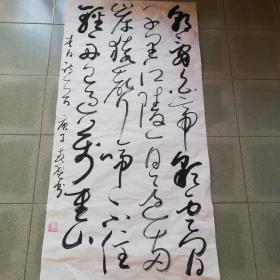 朝辞白帝彩云间
千里江陵一日还两
岸猿声啼不住
轻舟已过万重山
李白诗一首 庚子